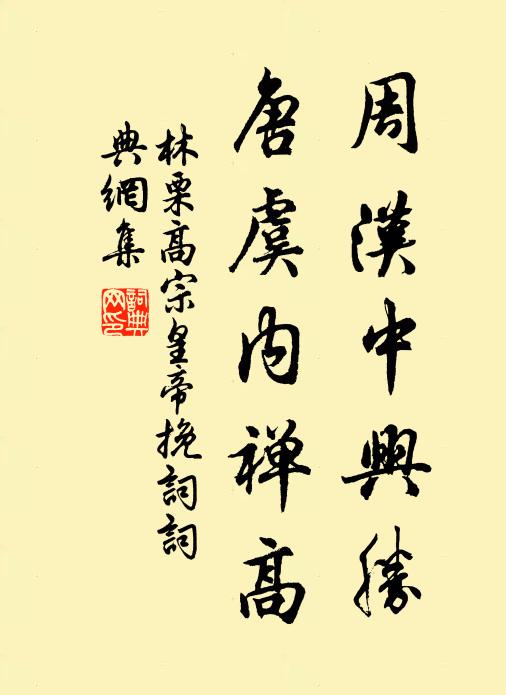 周漢中興勝
唐虞内禅高
林栗高宗皇帝挽詞詞
典網集
詞典
网印